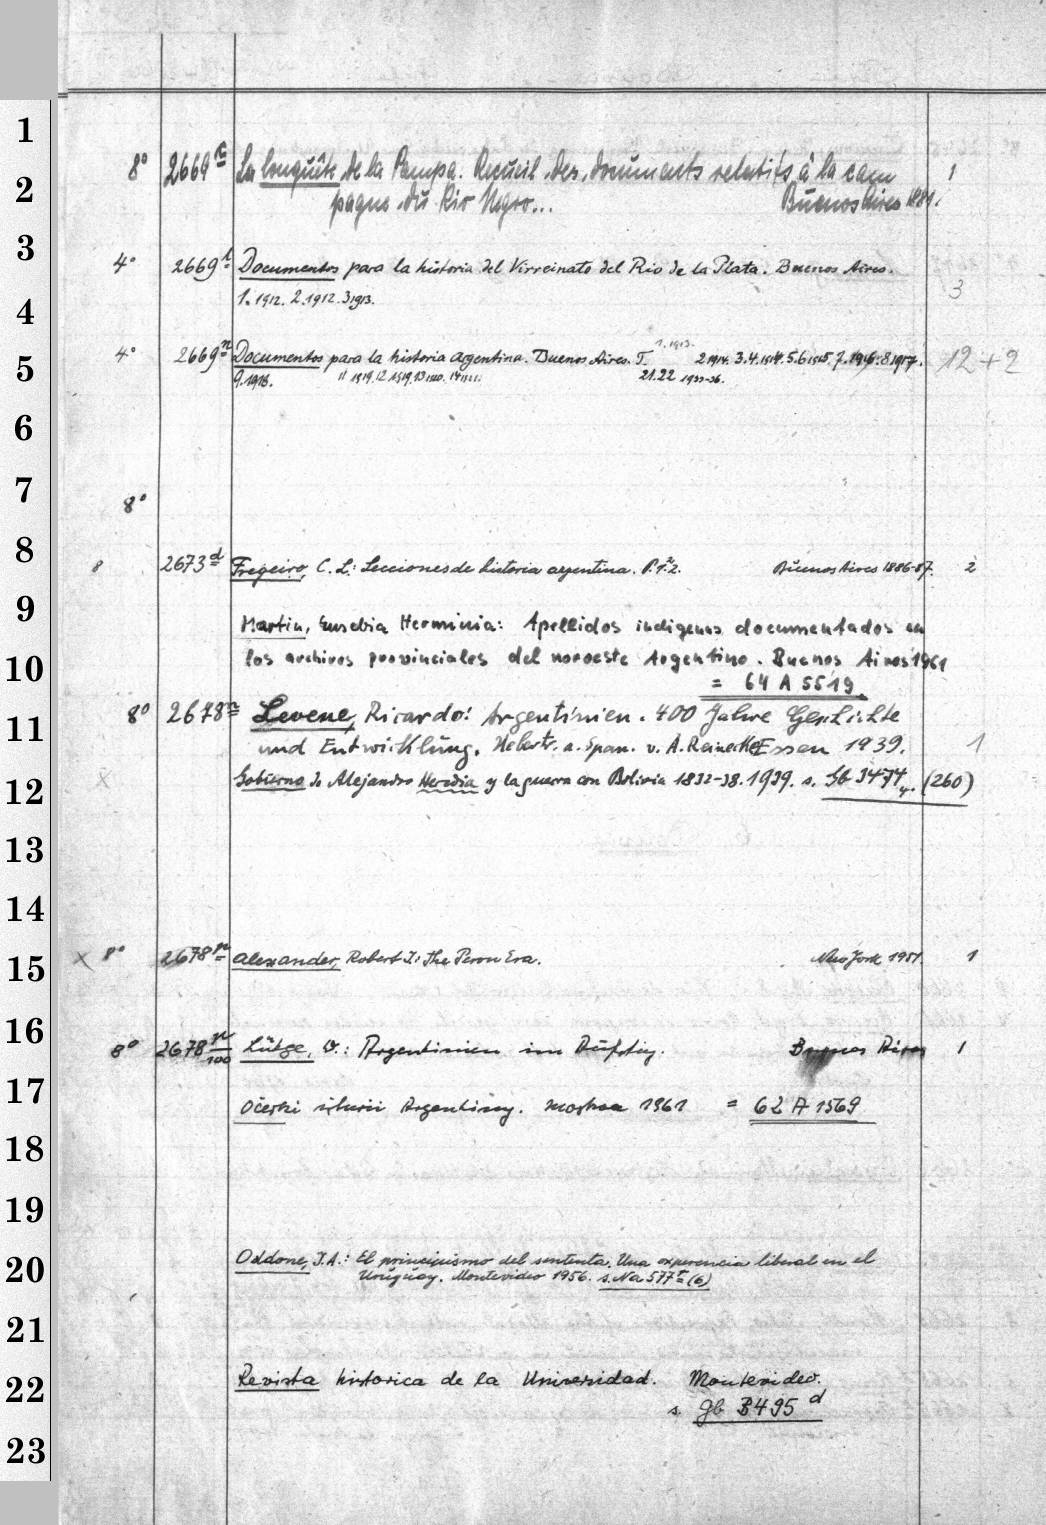 1
2
3
4
5
6
7
8
9
10
11
12
13
14
15
16
17
18
19
20
21
22
23
8° 2669 La Conquête de la Pampa. Recueil des documents relatifs à la cam 1
pagne du Rio Negro... Buenos Aires 1881.
4° 2669 l Documentos para la historia del Virreinato del Rio de la Plata. Buenos Aires.
1. 1912. 2. 1912. 3 1913. 3
1. 1913.
4° 2669 n Documentos para la historia argentina. Buenos Aires. T. 2 1914. 3.4. 1914. 5.6 1915. 7. 1916. 8. 1917. 12+2
9. 1918. 11 1919. 12 1919. 13 1920. 14 1921. 21.22 1933-36.
8°
8 2673 d Fregeiro, C. L.: Lecciones de historia argentina. P. 1. 2. Buenos Aires 1886-87. 2
Martin, Eusebia Herminia: Apellidos indigenas documentados en
los archivos provinciales del noroeste Argentino. Buenos Aires 1961
= 64 A 5519
8° 2678 n Levene, Ricardo: Argentinien. 400 Jahre Geschichte
und Entwicklung. Uebertr. a. Span. v. A. Reinecke Essen 1939. 1
x Gobierno de Alejandro Heredia y la guerra con Bolivia 1832-38. 1939. s. Gb 3474 (260)
x 8° 2678 Alexander, Robert J.: The Peron Era. New York 1951. 1
8° 2678 n/100 Lütge, W.: Argentinien im Aufstieg. Buenos Aires 1
Očerki istorii Argentiny. Moskva 1961 = 62 A 1569
Oddone, J.A.: El principismo del setenta. Una experiencia liberal en el
Uruguay. Montevideo 1956. s. Na 577 (6)
Revista historica de la Universidad. Montevideo.
s. Gb 3495 d